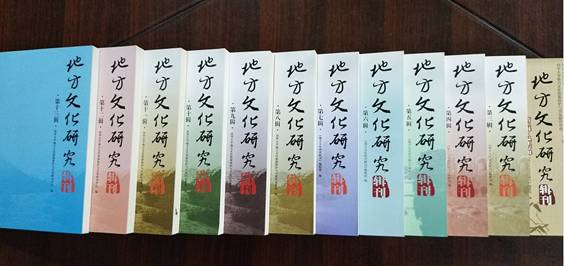 地方文化研究
·第十三辑·
辑刊
地方文化研究
·第十二辑·
辑刊
地方文化研究
·第十一辑·
辑刊
地方文化研究
·第十辑·
辑刊
地方文化研究
·第九辑·
辑刊
地方文化研究
·第八辑·
辑刊
地方文化研究
·第七辑·
辑刊
地方文化研究
·第六辑·
辑刊
地方文化研究
·第五辑·
辑刊
地方文化研究
·第四辑·
辑刊
地方文化研究
·第三辑·
辑刊
地方文化研究
辑刊